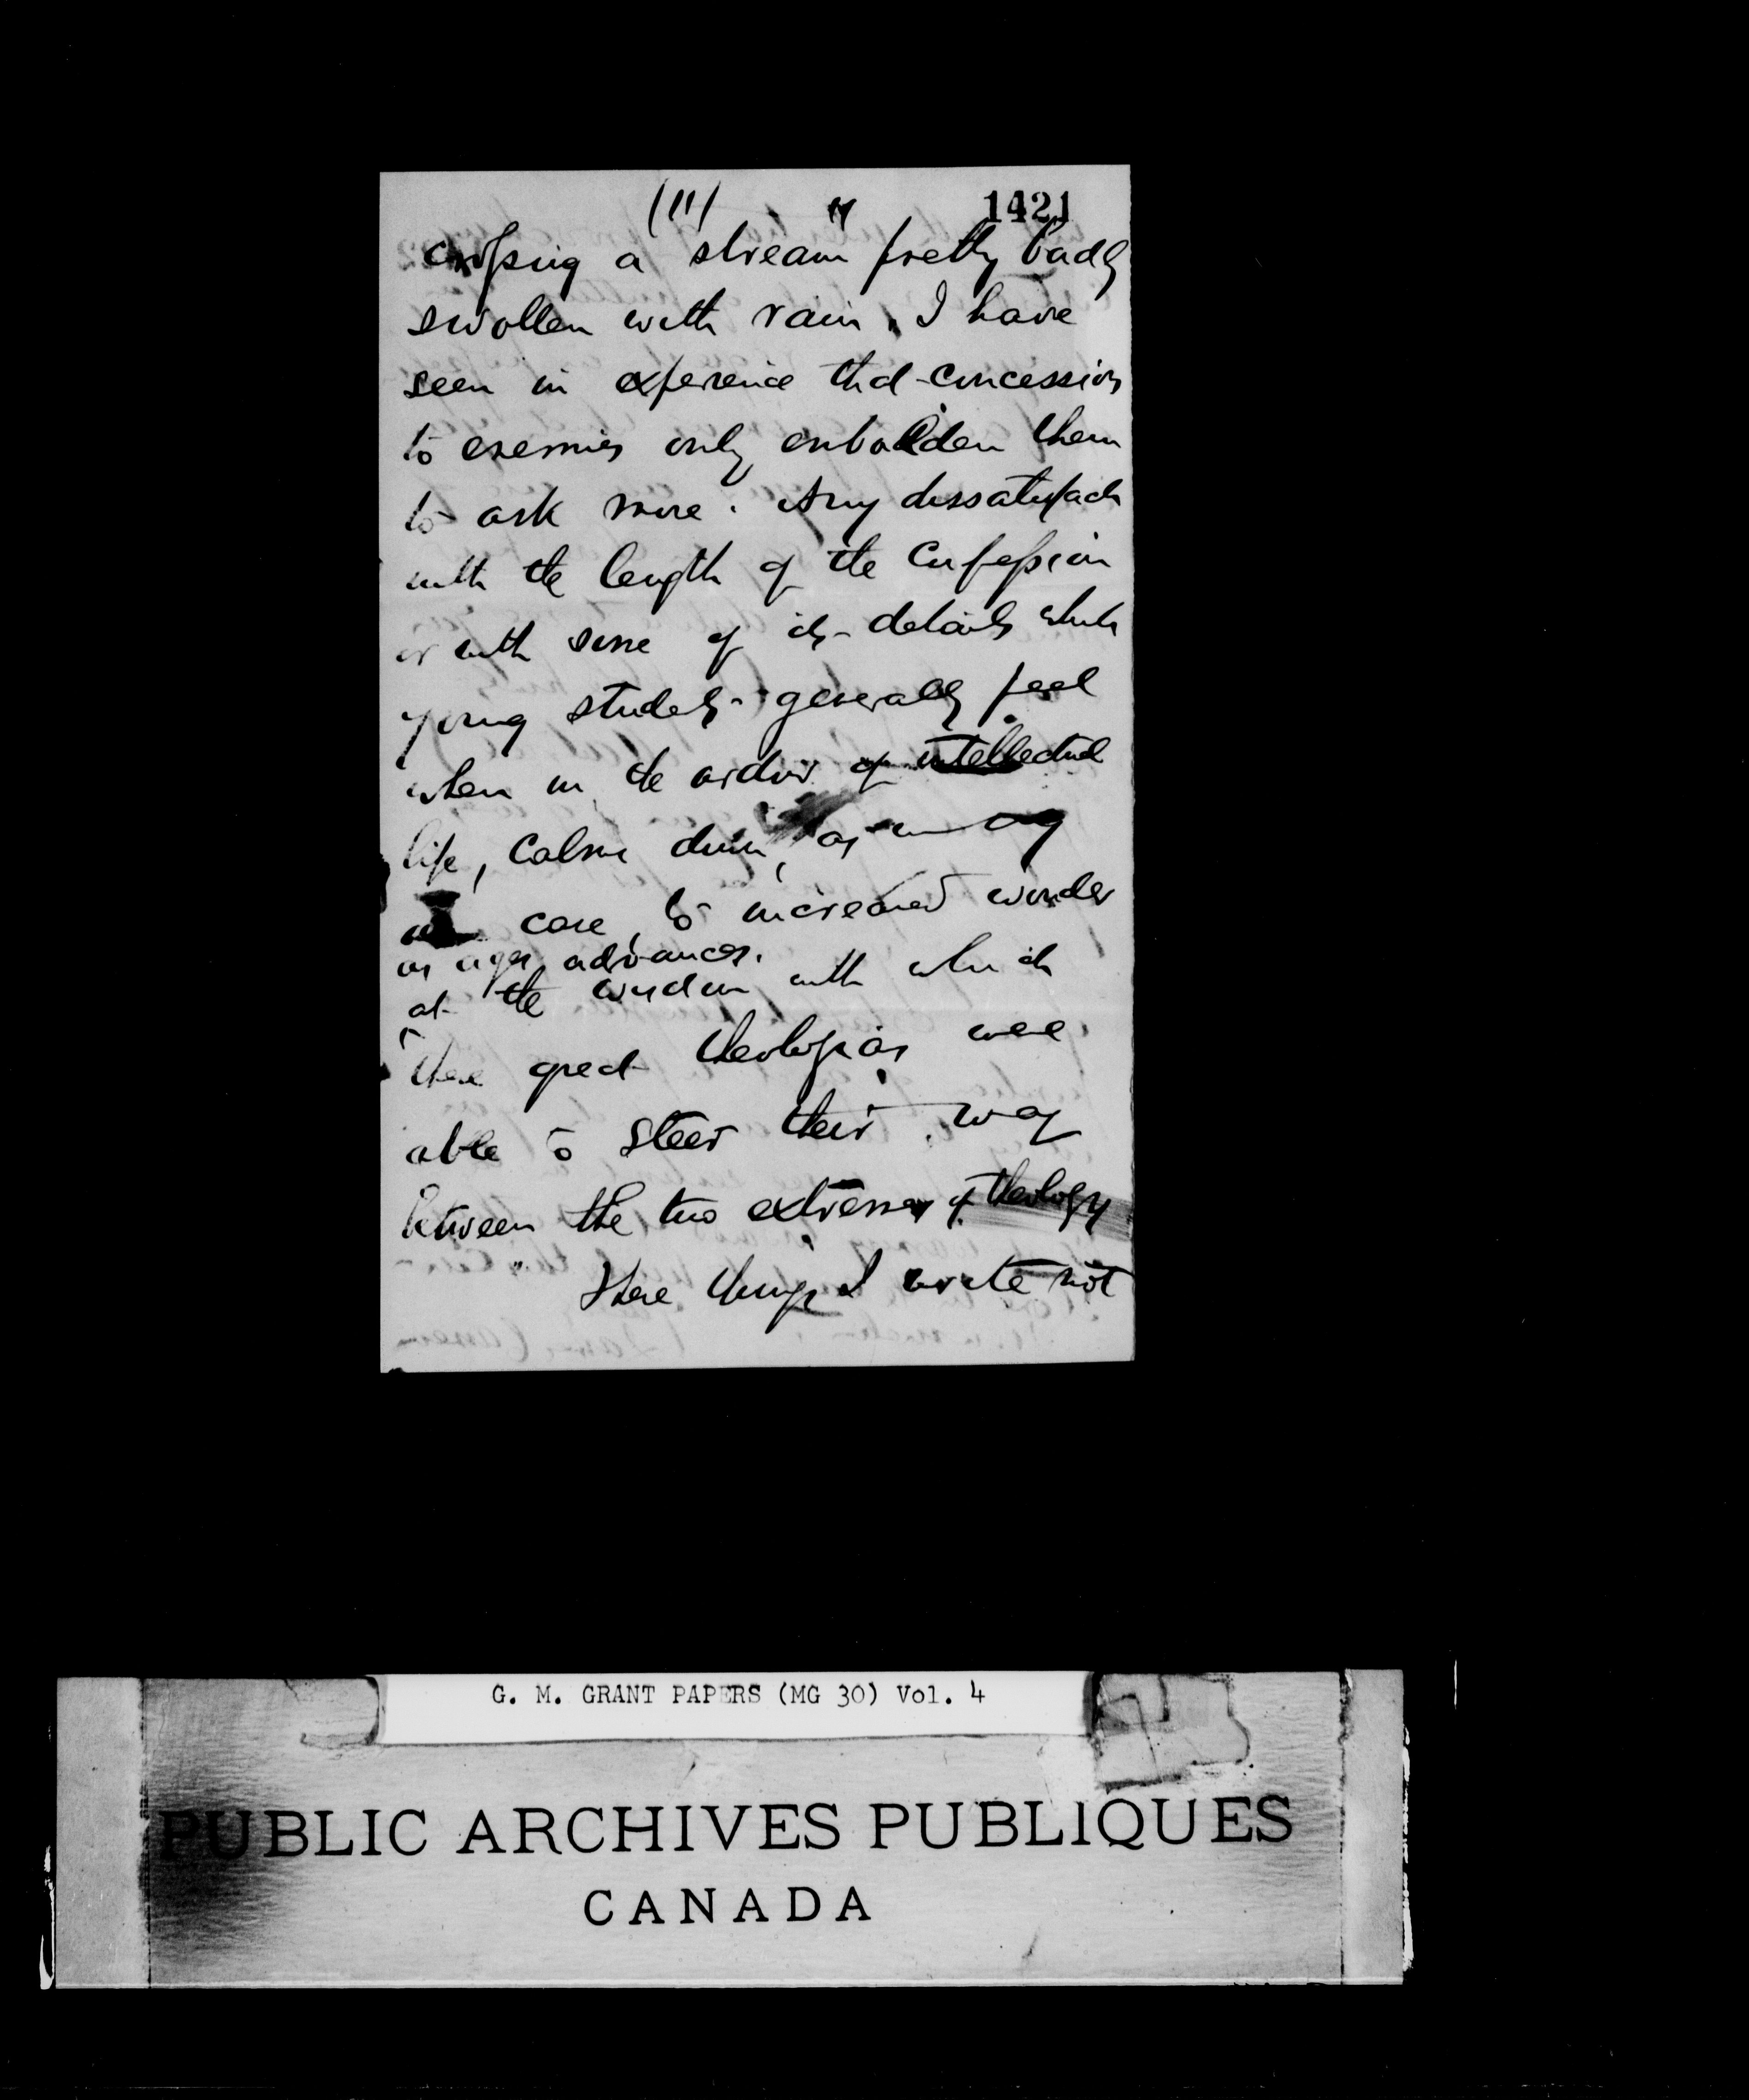 (11)
1421
crossing a stream" pretty badly
swollen with rain. I have
seen in experience that concessions
to enemies only enbolden them
to ask more. Any dissatisfactn
with the length of the Confession
or with some of its details which
young students generally feel
when in the ardor of intellectual
life, calms down, as in my
own case, to increased wonder
as age advances.
at the wisdom with which
these great theologians were
able to steer their way
between the two extremes of theology
These things I write not
G. M. GRANT PAPERS (MG 30) Vol. 4
PUBLIC ARCHIVES PUBLIQUES
CANADA